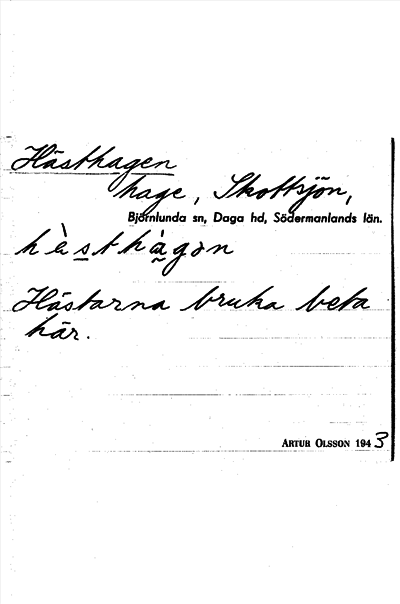 Hästhagen
hage, Skottsjön,
Björnlunda sn, Daga hd, Södermanlands län.
hὲsthàgən
Hästarna bruka beta
här.
ARTUR OLSSON 1943